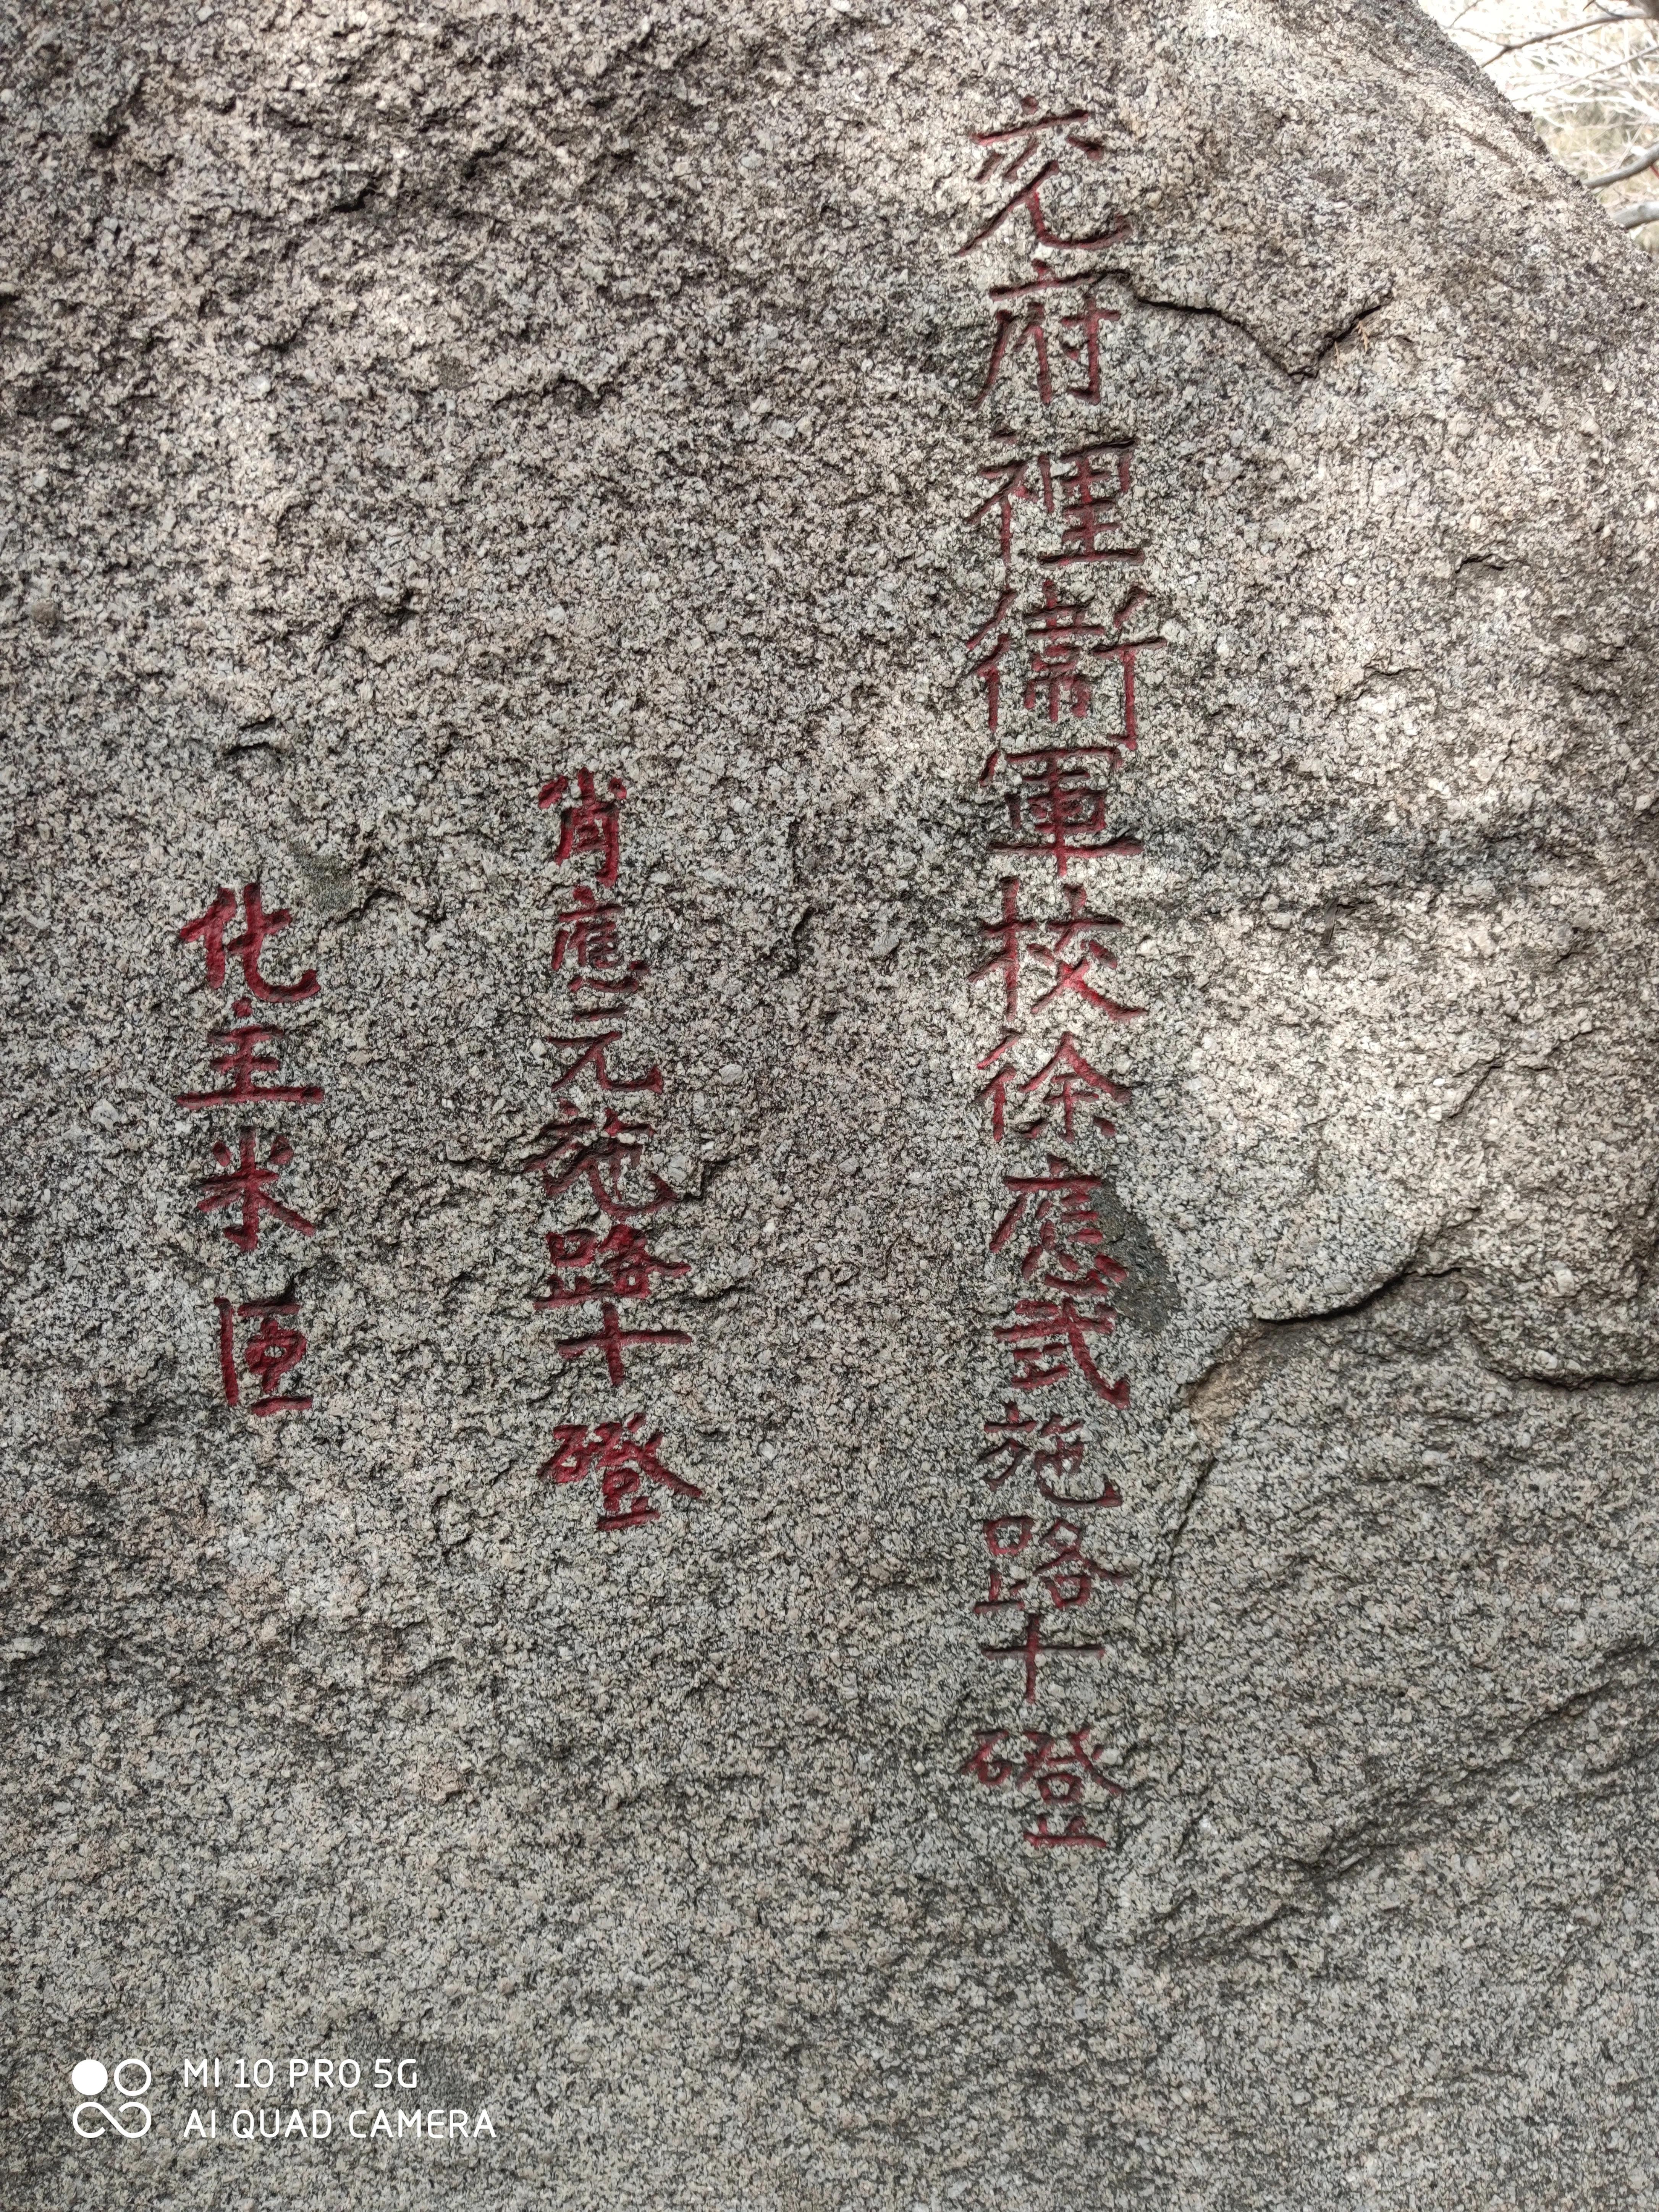 兖府裡衞軍校徐應武施路十磴
肖應元施路十磴
化主米匣
MI 10 PRO 5G
AI QUAD CAMERA